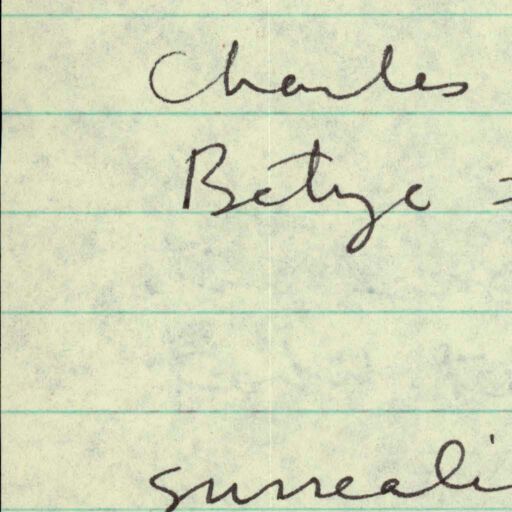 Charles
Betye =
surreali